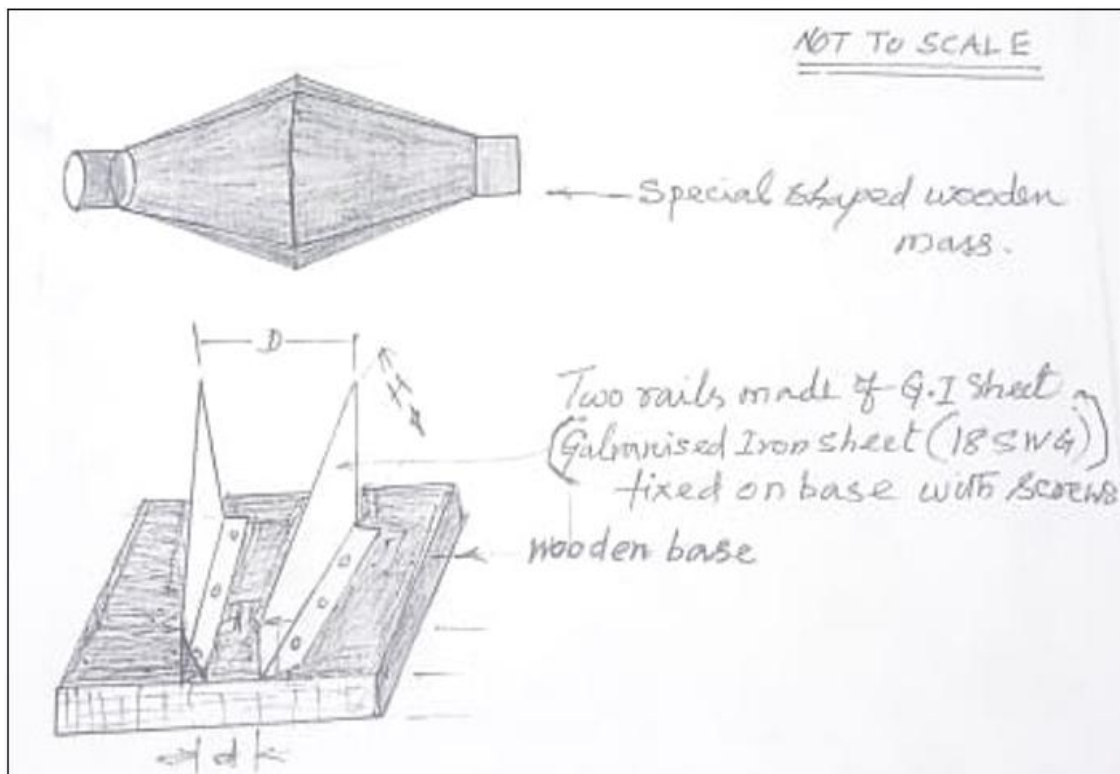 NOT TO SCALE
Special shaped wooden
mass.
D
H
Two rails made of G.I Sheet
(Galvanised Iron sheet (18 SWG))
fixed on base with screws
wooden base
d